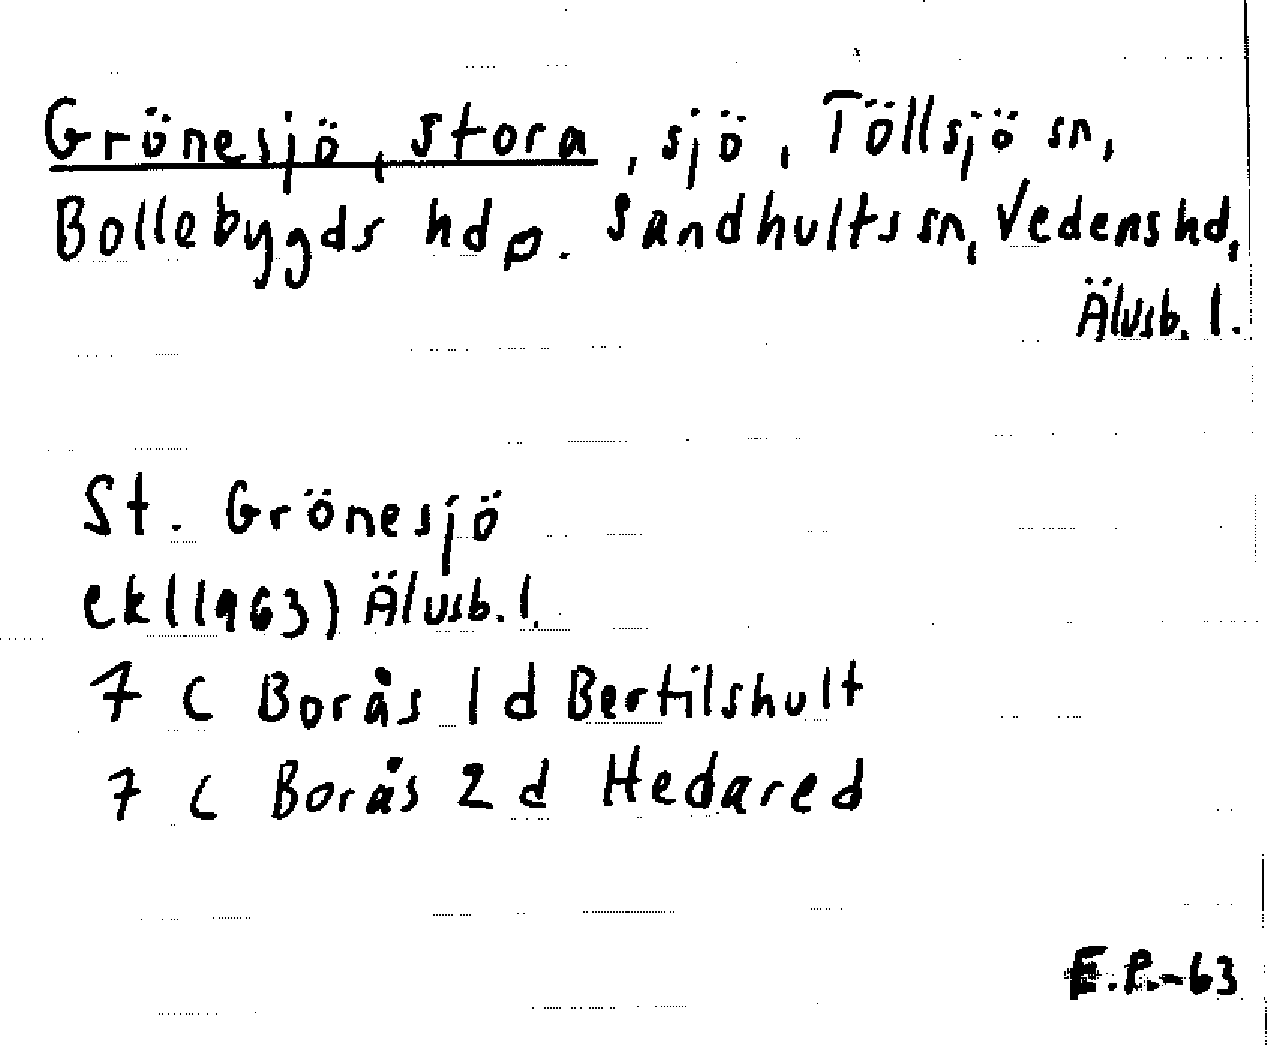 Grönesjö, stora, sjö, Töllsjö sn,
Bollebygds hd o. Sandhults sn, Vedens hd,
Älvsb. l.
St. Grönesjö
ek (1963) Älvsb. l.
7 C Borås 1 d Bertilshult
7 C Borås 2 d Hedared
E.P.-63